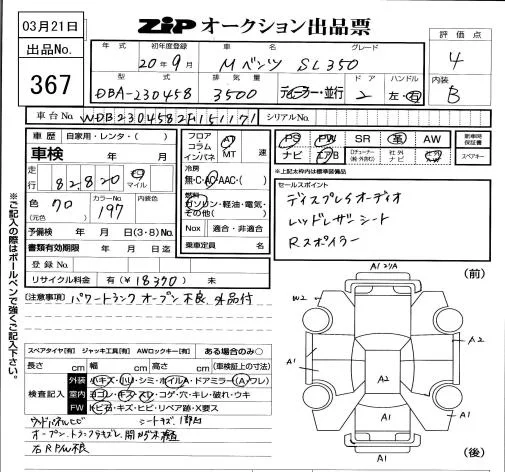 03月21日
ZiP オークション出品票
出品No.
367
年式 初年度登録 車名 グレード
20年9月 Mベンツ SL350
評価点
4
型式 排気量 ドア ハンドル
DBA-230458 3500 ディーラー・並行 2 左・右
内装
B
車台No. WDB2304582F151171 シリアルNo.
車歴 自家用・レンタ・( )
車検 年 月
走行 82,820 km マイル
色 70 カラーNo. 197 内装色
(元色)
予備検 年 月 日(3・8)No.
書類有効期限 年 月 日迄
登録No.
リサイクル料金 有(¥18370) 未
フロア コラム インパネ AT MT 速
冷房
無・C・A・AAC・( )
燃料
ガソリン・軽油・電気・その他( )
Nox 適合・非適合
乗車定員 名
PS PW SR 革 AW
ナビ エアB TV
新車時保証書
スペアキー
※上記太枠内は標準装備品
セールスポイント
ディスプレSオーディオ
レッドレザーシート
Rスポイラー
※ご記入の際はボールペンで強くご記入下さい。
(注意事項) パワートランク オープン不良 外品付
スペアタイヤ[有] ジャッキ工具[有] AWロックキー[有] ある場合のみ○
長さ cm 幅 cm 高さ cm (車検証上の寸法)
検査記入
外装 小キズ・小U・シミ・ホイルA・ドアミラー(A・ワレ)
室内 ヨゴレ・キズ・スレ・コゲ・穴・キレ・破れ・ウキ
FW トビ石・キズ・ヒビ・リペア跡・X要ス
ウッドパネルヒビ シートキズ
右RPW不良
(前)
W2
A2
A1
A1
A2
A1
A1
(後)